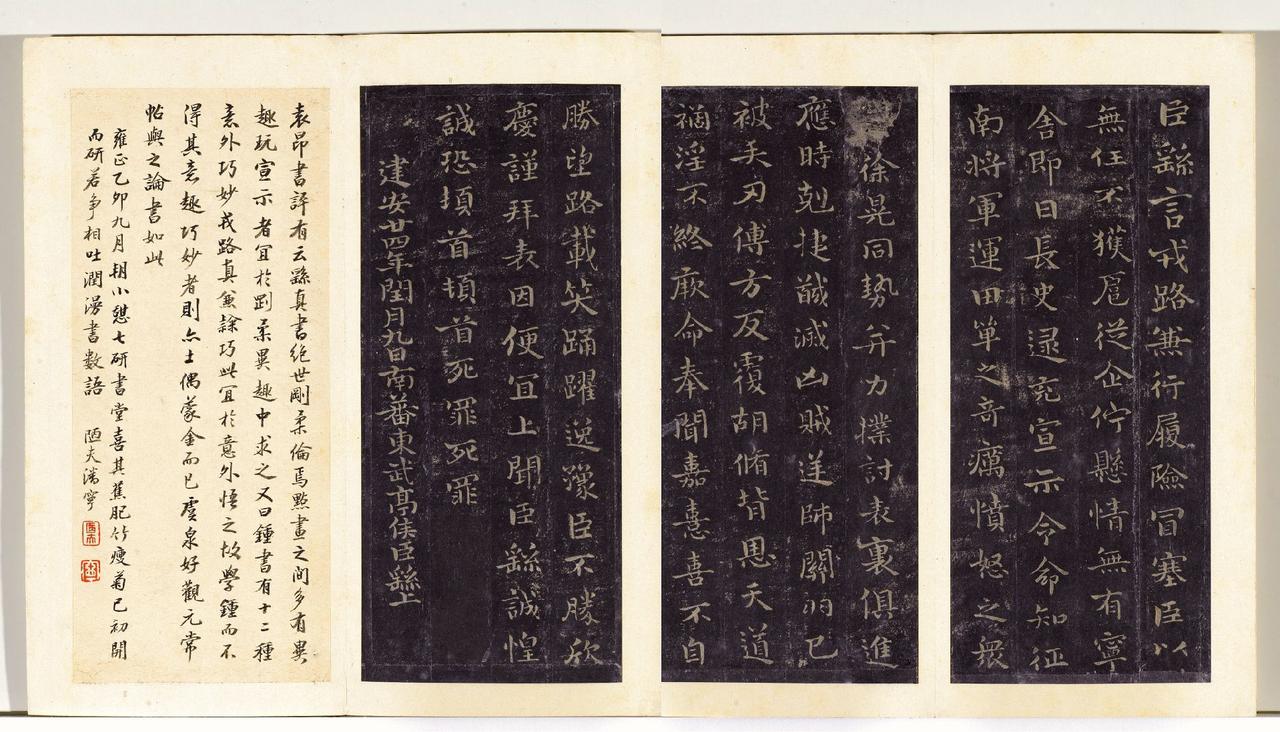 臣繇言戎路兼行履險冒塞臣以
無任不獲扈從企佇懸情無有寧
舍即日長史逯充宣示令命知征
南將軍運田單之奇厲憤怒之衆
徐晃同勢并力撲討表裏俱進
應時剋捷馘滅凶賊送帥關羽已
被矢刃傅方反覆胡脩背恩天道
禍淫不終厥命奉聞嘉憙喜不自
勝望路載笑踊躍逸豫臣不勝欣
慶謹拜表因便宜上聞臣繇誠惶
誠恐頓首頓首死罪死罪
建安廿四年閏月九日南蕃東武亭侯臣繇上
袁昂書評有云繇真書絕世剛柔備焉點畫之間多有異
趣玩宣示者宜於剛柔異趣中求之又曰鍾書有十二種
意外巧妙戎路真兼隸巧此宜於意外悟之故學鍾而不
得其意趣巧妙者則亦土偶蒙金而已虞泉好觀元常
帖與之論書如此
雍正乙卯九月朔小憩七研書堂喜其蕉肥竹瘦菊已初開
而研若爭相吐潤漫書數語 陋夫潘寧